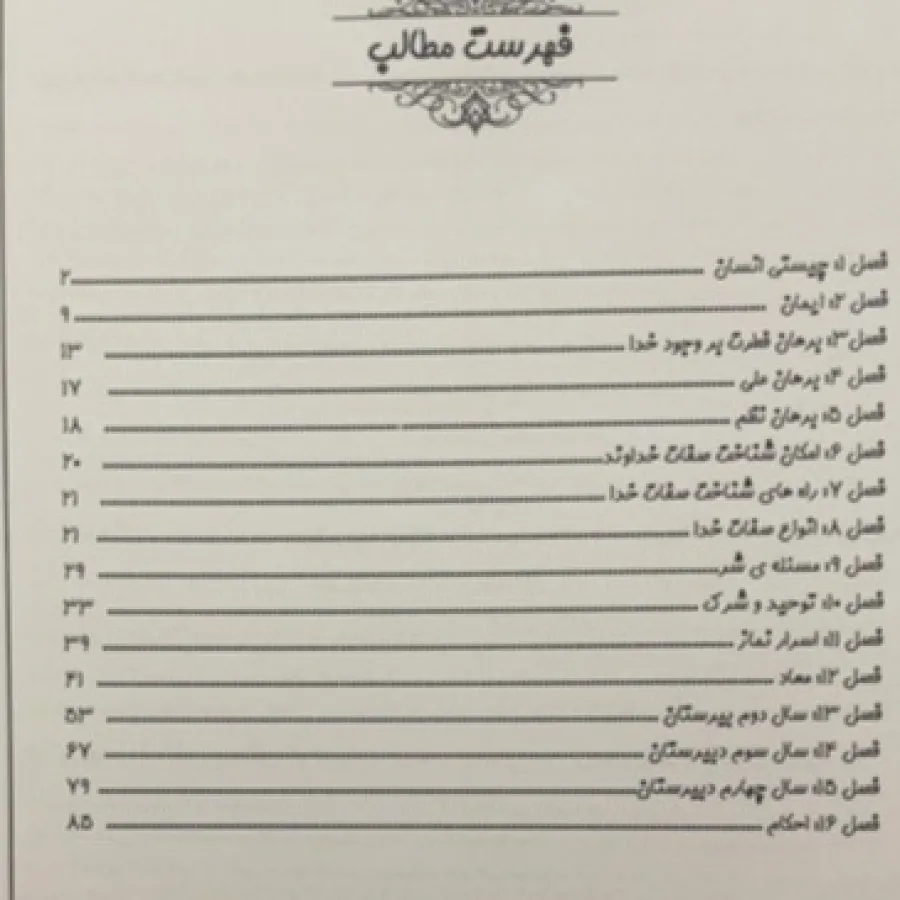 فهرست مطالب
فصل ۱: چیستی انسان ۲
فصل ۲: ایمان ۹
فصل ۳: برهان فطرت بر وجود خدا ۱۳
فصل ۴: برهان علی ۱۷
فصل ۵: برهان نظم ۱۸
فصل ۶: امکان شناخت صفات خداوند ۲۰
فصل ۷: راه های شناخت صفات خدا ۲۱
فصل ۸: انواع صفات خدا ۲۱
فصل ۹: مسئله ی شر ۲۹
فصل ۱۰: توحید و شرک ۳۳
فصل ۱۱: اسرار نماز ۳۹
فصل ۱۲: معاد ۴۱
فصل ۱۳: سال دوم دبیرستان ۵۳
فصل ۱۴: سال سوم دبیرستان ۶۷
فصل ۱۵: سال چهارم دبیرستان ۷۹
فصل ۱۶: احکام ۸۵